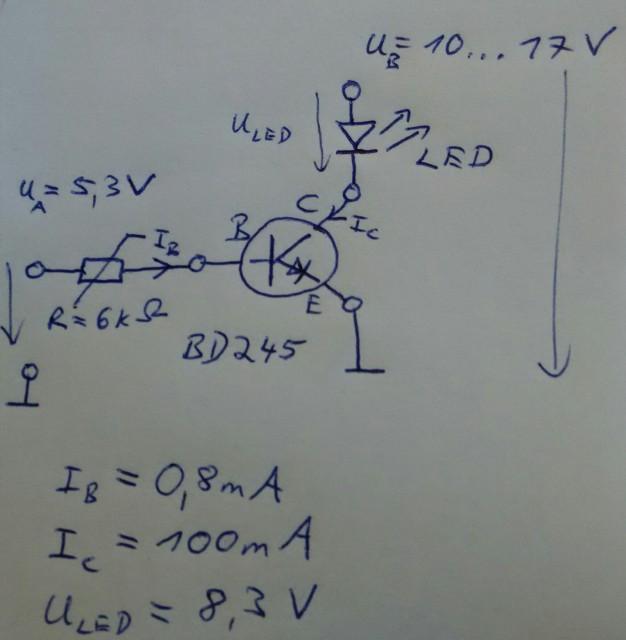 U_B = 10... 17 V
U_LED
LED
U_A = 5,3 V
C
I_C
B
I_B
E
R = 6kΩ
BD245
I_B = 0,8mA
I_C = 100mA
U_LED = 8,3 V